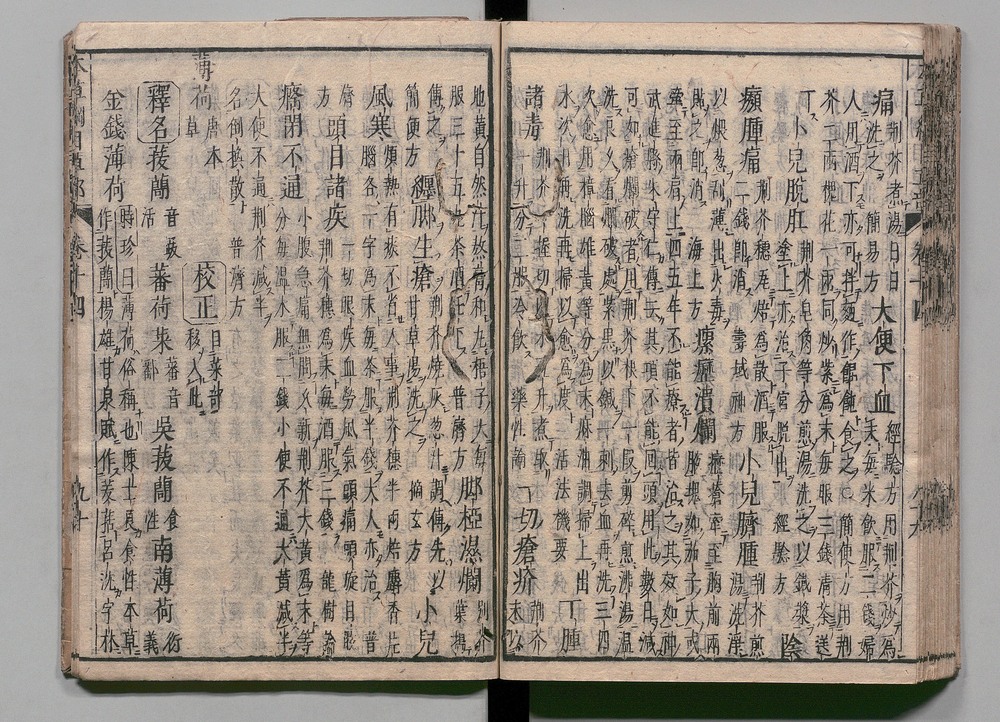 痛 荊芥煮湯日日洗之 簡易方 大便下血 經驗方 用荊芥炒為末每米飲服二錢婦
人用酒下亦可拌麵作餛飩食之 簡便方 用荊
芥二兩槐花一兩同炒紫為末每服三錢清茶送
下 小兒脫肛 荊芥皂角等分煎湯洗之以鐵漿塗上亦治子宮脫出 經驗方 陰
癩腫痛 荊芥穗瓦焙為散酒服二錢即消 壽域神方 小兒臍腫 荊芥煎湯洗淨
以煨葱刮薄出火毒貼之即消 海上方 瘰癧潰爛 癧瘡牽至胸前兩
腋塊如茄子大或牽至兩肩上四五年不能療者皆治之其效如神
武進縣朱守仁傳云其項不能回頭用此數日減
可如瘡爛破者用荊芥根下一段剪碎煎沸湯溫
洗良久看爛破處紫黑以鍼一刺去血再洗三四
次愈用樟腦雄黃等分為末麻油調掃上出
水次日再洗再掃以愈為度 活法機要 丁腫
諸毒 一切瘡疥 荊芥
地黃自然汁熬膏和丸梧子大每
服三十五丸茶酒任下 普濟方 腳椏濕爛 荊芥葉搗
傅之 簡便方 纏腳生瘡 荊芥燒灰葱汁調傅先以甘草湯洗之 摘玄方 小兒
風寒 煩熱有痰不省人事荊芥穗半兩焙麝香片腦各一字為末每茶服半錢大人亦治 普
濟方 頭目諸疾 一切眼疾血勞風氣頭痛頭旋目眩荊芥穗為末每酒服三錢 龍樹論
癃閉不通 小腹急痛無問久新荊芥大黃為末等分每溫水服三錢小便不通大黃減半
大便不通荊芥減半名倒換散 普濟方
薄荷 唐本草 校正 自菜部移入此
釋名 菝蕳 音跋活 蕃荷菜 蕃音鄱 吳菝蕳 食性 南薄荷 衍義
金錢薄荷 時珍曰薄荷俗稱也陳士良食性本草作菝蕳楊雄甘泉賦作茇葀呂忱字林